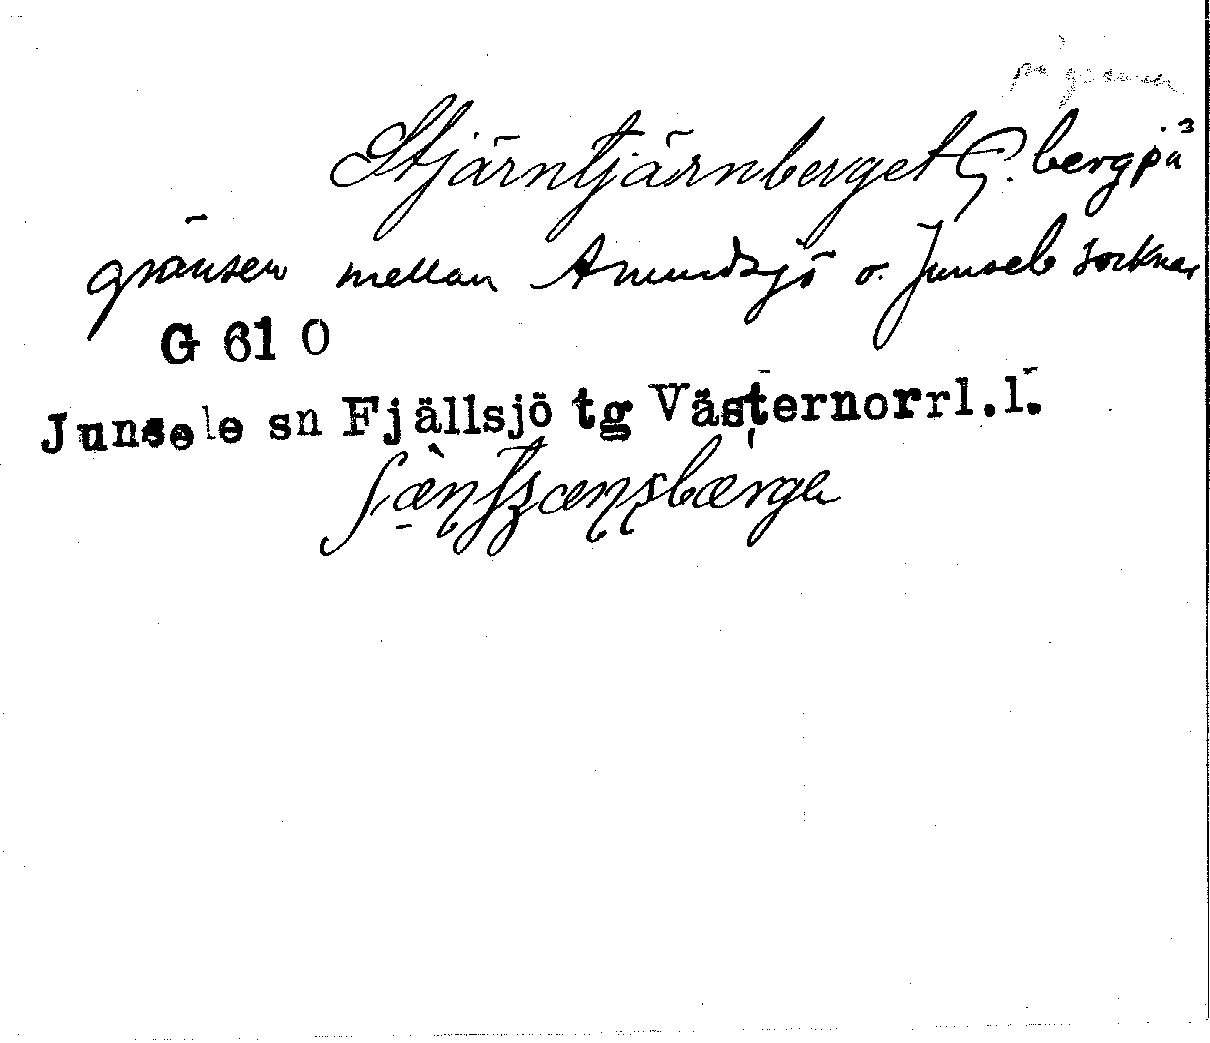 på gränsen
Stjärntjärnberget G. berg på
gränsen mellan Anundsjö o. Junsele socknar
G 61 O
Junsele sn Fjällsjö tg Västernorrl.l.